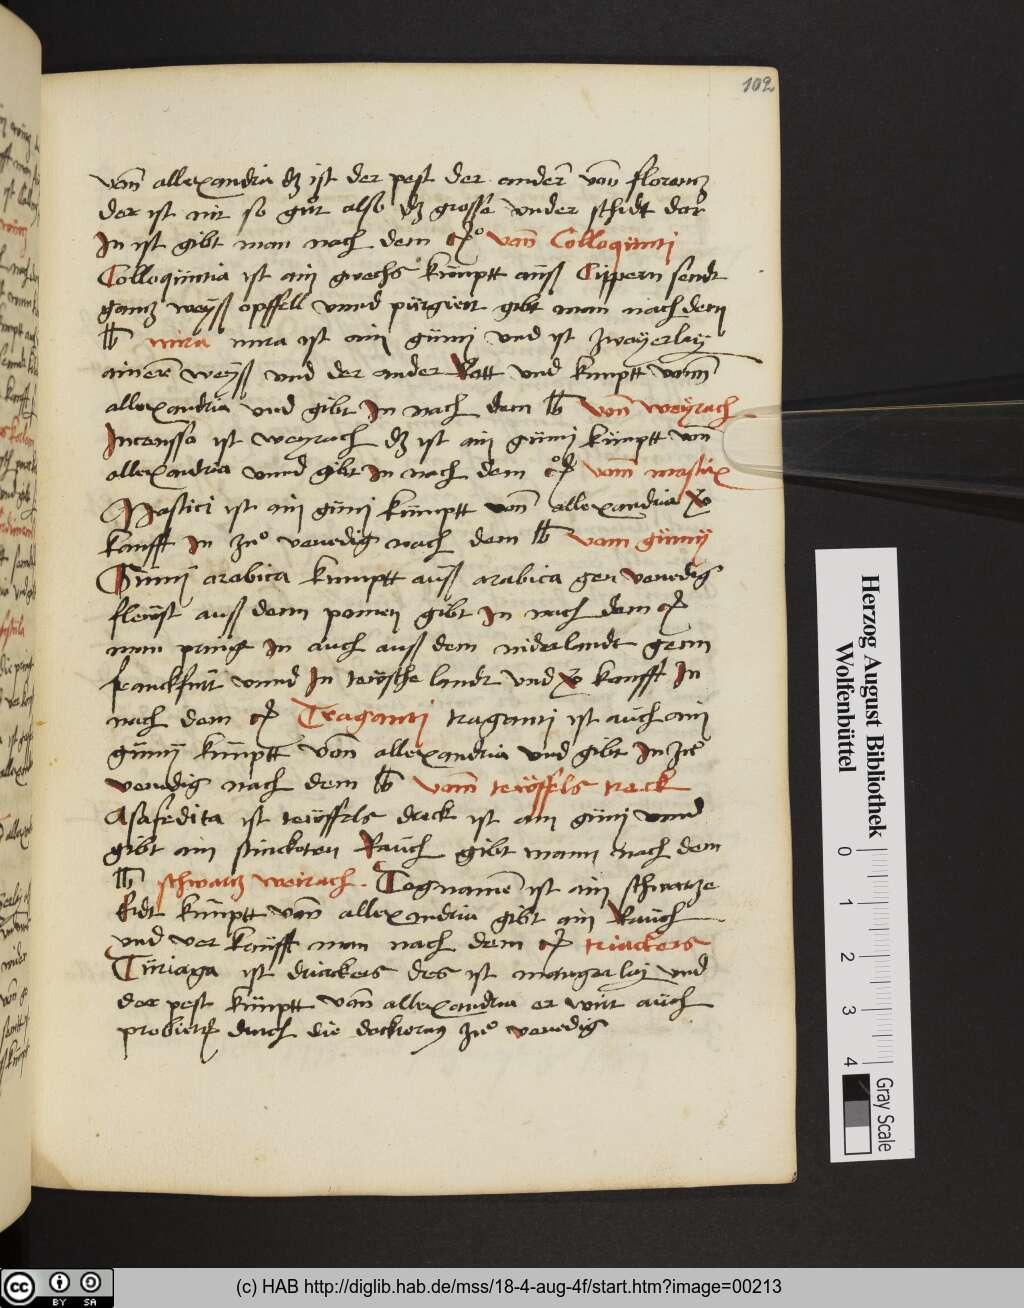 102
vom̄ allexandria dz ist der pest der ander̄ von̄ florentz
der ist nit so gůt also dz grosse vnder schidt dar
In ist gibt man nach dem c͛ von̄ Colloquinti
Colloquintia ist ain gwechs kümptt auß Cippern sendt
gantz weyß opffell vnnd purgiert gibt man nach dem
℔ mira mira ist ain gumj vnd ist zwayerlay
ainer weyß vnd der ander Rott vnd kumptt vonn
allexandria vnd gibt In nach dem ℔ von̄ weyrach
Incensso ist weyrach dz ist ain gumj kümptt von
allexandria vnnd gibt In nach dem c͛ vom̄ mastix
Mastici ist ain gumj kümptt von̄ allexandria
kaufft In zuͦ venedig nach dem ℔ vom gumy
Gumy arabica kumptt auß arabica gen venedig
fleüst auß denn pomen gibt In nach dem c͛
man pringt In auch auß dem niderlandt genn
franckfurt vnnd In teẅsche landt vnd kaufft In
nach dem c͛ Traganti traganti ist auch ain
gumy kümptt von̄ allexandria vnd gibt In zuͦ
venedig nach dem ℔ vom̄ teẅffels treck
Asafedita ist teẅffels dreck ist ain gumj vnnd
gibt ain stincketen Rauch gibt mann nach dem
℔ schwartz weirach. Tegname ist ain schwartze
Erdt kümptt von̄ allexandria gibt ain Rauch
vnd ver kaufft man nach dem c͛ triackers
Tiriaga ist driackers des ist mangerlaj vnd
der pest kümptt von̄ allexandria er wirt auch
probiert durch die docktorn zuͦ venedig
Herzog August Bibliothek
Wolfenbüttel
0 1 2 3 4
Gray Scale
cc BY SA
(c) HAB http://diglib.hab.de/mss/18-4-aug-4f/start.htm?image=00213